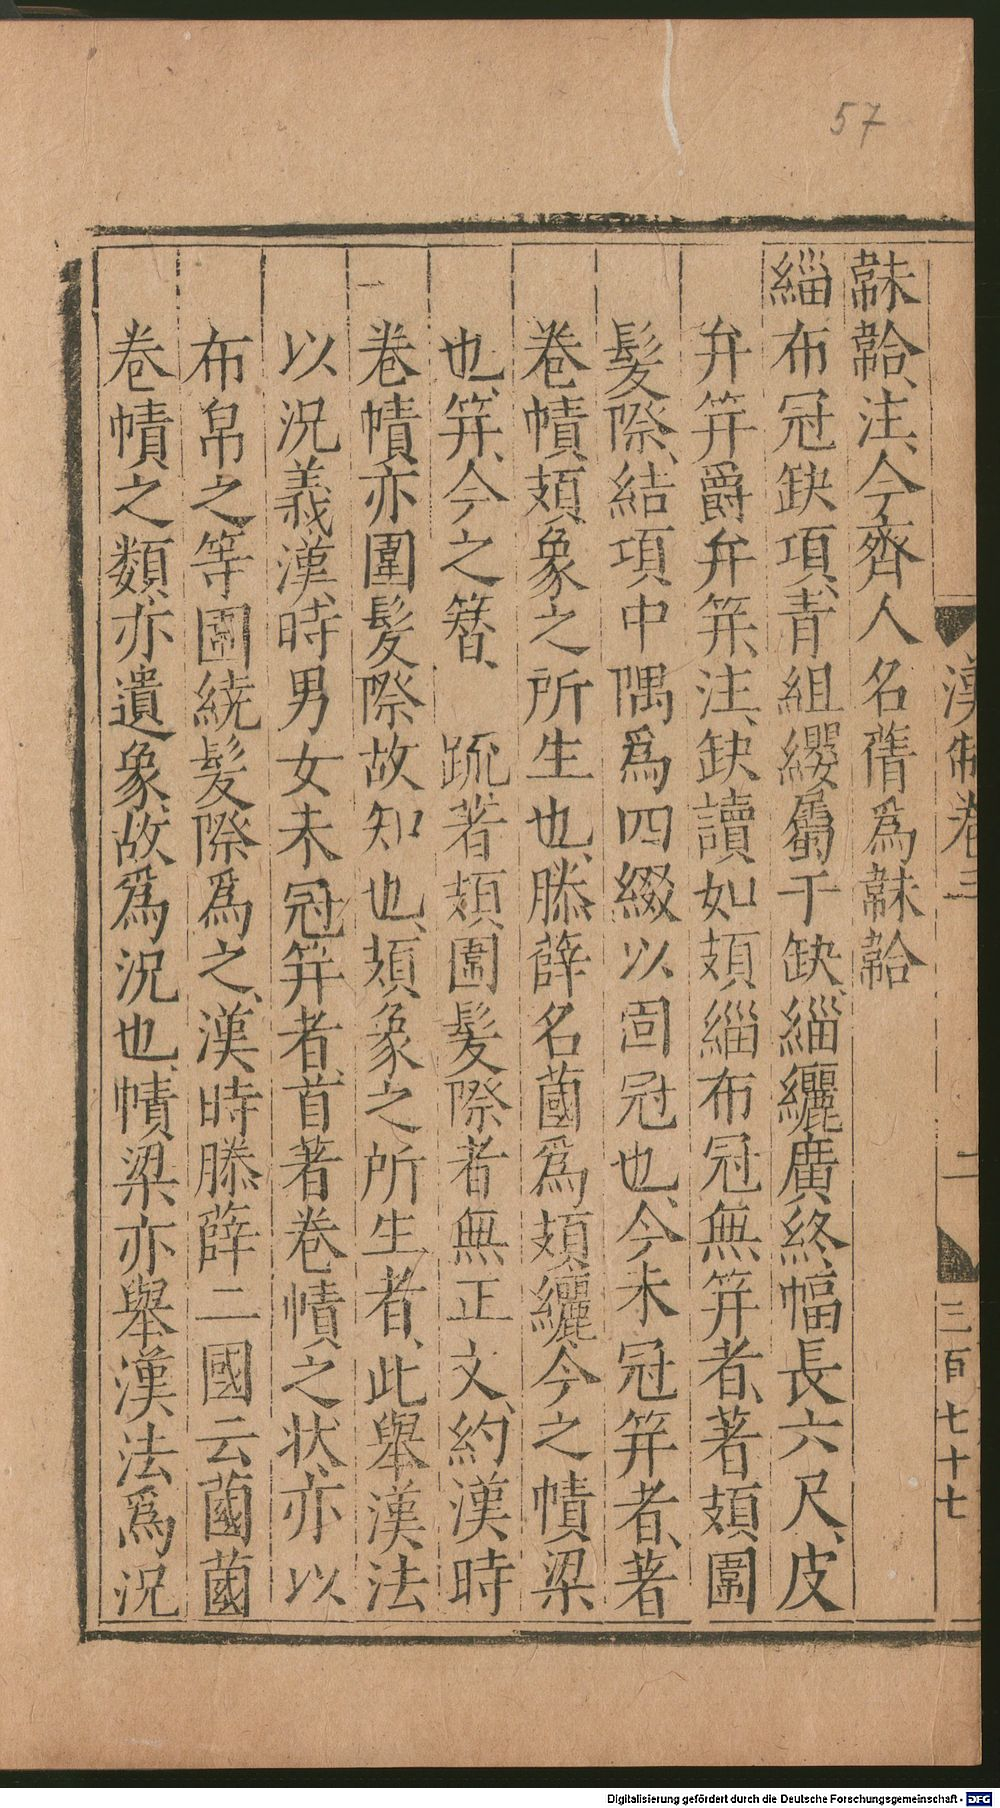 57
漢制卷三
二
三百七十七
韎韐、注、今齊人名蒨爲韎韐
緇布冠缺項、青組纓屬于缺、緇纚廣終幅長六尺、皮
弁笄爵弁笄、注、缺讀如頍緇布冠無笄者、著頍圍
髮際、結項中隅爲四綴以固冠也、今未冠笄者、著
卷幘頍象之所生也、滕薛名蔮爲頍纚今之幘梁
也、笄、今之簪、 疏著頍圍髮際者無正文、約漢時
卷幘亦圍髮際故知也、頍象之所生者、此舉漢法
以況義漢時男女未冠笄者、首著卷幘之状、亦以
布帛之等圍繞髮際爲之、漢時滕薛二國云蔮蔮
卷幘之類、亦遺象、故爲況也、幘梁亦舉漢法爲況
Digitalisierung gefördert durch die Deutsche Forschungsgemeinschaft - DFG